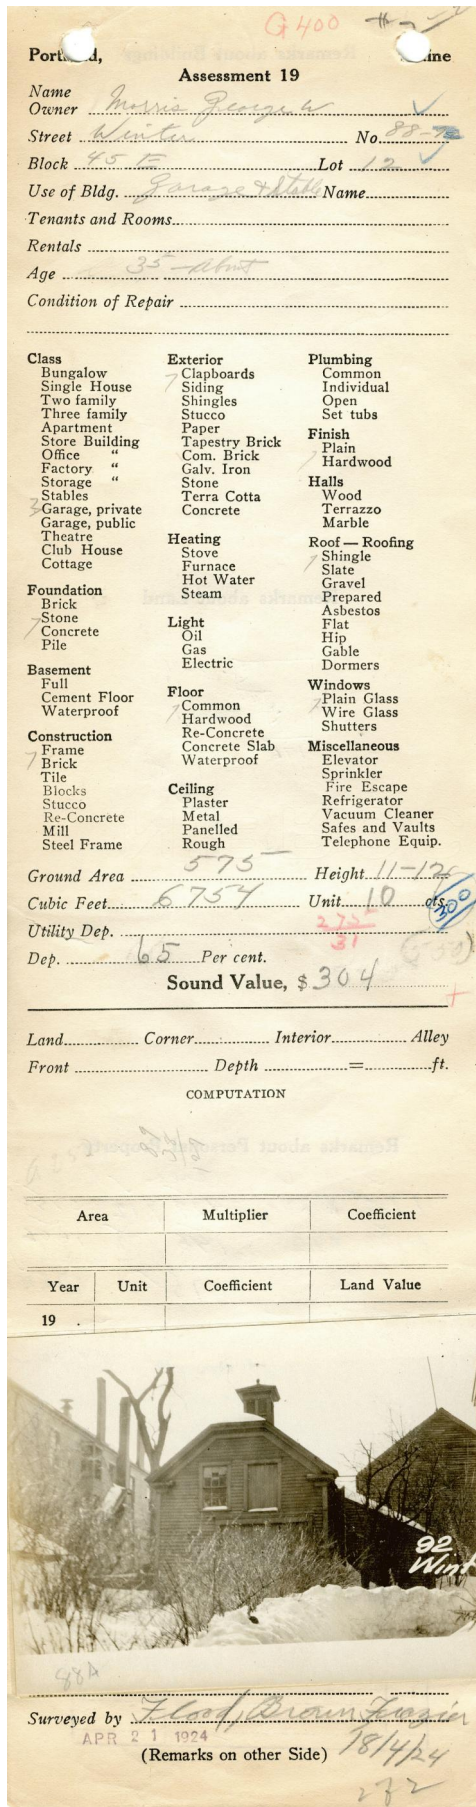 G 400
Portland, Maine
Assessment 19
Name
Owner Morris George W
Street Winter No 88-92
Block 45 E Lot 12
Use of Bldg. Garage & Stable Name
Tenants and Rooms
Rentals
Age 35-About
Condition of Repair
Class
Bungalow
Single House
Two family
Three family
Apartment
Store Building
Office "
Factory "
Storage "
Stables
3 Garage, private
Garage, public
Theatre
Club House
Cottage
Foundation
Brick
Stone
Concrete
Pile
Basement
Full
Cement Floor
Waterproof
Construction
Frame
Brick
Tile
Blocks
Stucco
Re-Concrete
Mill
Steel Frame
Exterior
Clapboards
Siding
Shingles
Stucco
Paper
Tapestry Brick
Com. Brick
Galv. Iron
Stone
Terra Cotta
Concrete
Heating
Stove
Furnace
Hot Water
Steam
Light
Oil
Gas
Electric
Floor
Common
Hardwood
Re-Concrete
Concrete Slab
Waterproof
Ceiling
Plaster
Metal
Panelled
Rough
Plumbing
Common
Individual
Open
Set tubs
Finish
Plain
Hardwood
Halls
Wood
Terrazzo
Marble
Roof — Roofing
Shingle
Slate
Gravel
Prepared
Asbestos
Flat
Hip
Gable
Dormers
Windows
Plain Glass
Wire Glass
Shutters
Miscellaneous
Elevator
Sprinkler
Fire Escape
Refrigerator
Vacuum Cleaner
Safes and Vaults
Telephone Equip.
Ground Area 575 Height 11-12
Cubic Feet 6754 Unit 10 cts.
300
Utility Dep. 275
31
Dep. 65 Per cent.
Sound Value, $ 304
Land Corner Interior Alley
Front Depth = ft.
COMPUTATION
Area Multiplier Coefficient
Year Unit Coefficient Land Value
19 .
92
Wint
88A
Surveyed by Flood, Brown Frazier
APR 21 1924
(Remarks on other Side) 18/4/24
2 of 2